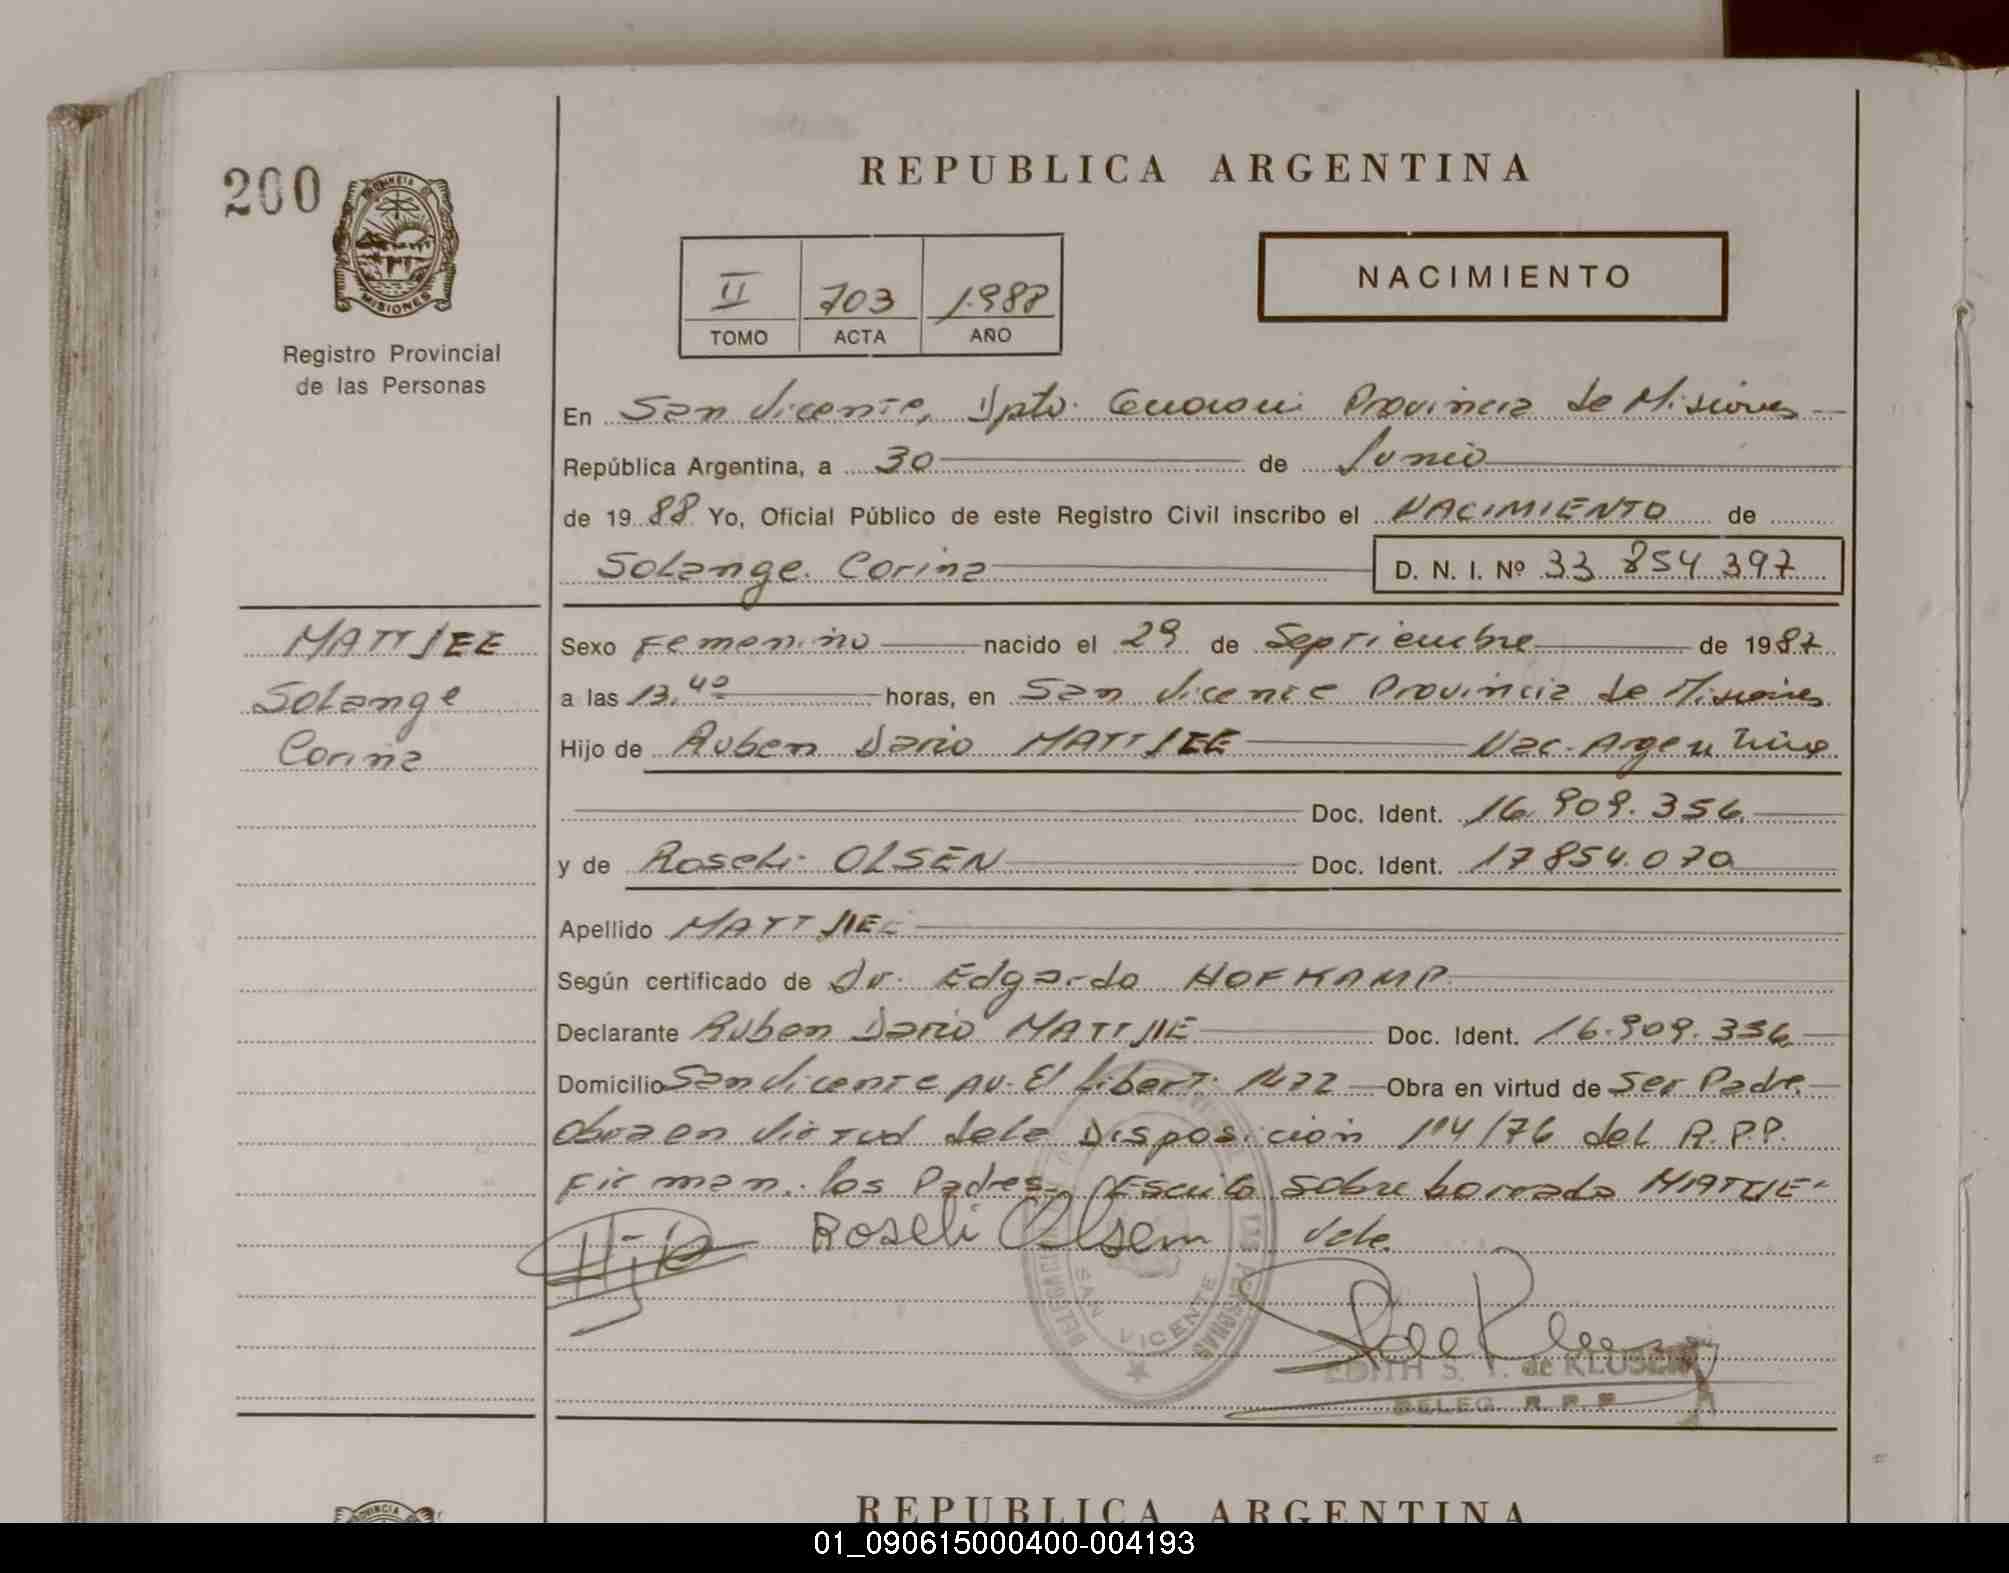 200
PROVINCIA D
MISIONES
Registro Provincial
de las Personas
REPUBLICA ARGENTINA
II 703 1.988
TOMO ACTA AÑO
NACIMIENTO
En San Vicente, Dpto. Guarani Provincia de Misiones
República Argentina, a 30 de Junio
de 1988 Yo, Oficial Público de este Registro Civil inscribo el NACIMIENTO de
Solange Corina D. N. I. Nº 33 854 397
MATTJEE
Solange
Corina
Sexo Femenino nacido el 29 de Septiembre de 1987
a las 13,40 horas, en San Vicente Provincia de Misiones
Hijo de Ruben Dario MATTJEE Nac. Argentino
Doc. Ident. 16.909.356
y de Roseli OLSEN Doc. Ident. 17854.070
Apellido MATTJIE
Según certificado de Dr. Edgardo HOFKAMP
Declarante Ruben Dario MATTJIE Doc. Ident. 16.909.356
Domicilio San Vicente Av. El Libert. 1472 Obra en virtud de Ser Padre.
Obra en virtud dela Disposicion 114/76 del R.P.P.
Firman. los Padres. Escrito sobre borrado MATTJIE-
Roseli Olsem Vale.
SAN VICENTE
EDITH S. T. de KLUSEN
DELEG. R P P
REPUBLICA ARGENTINA
01_090615000400-004193